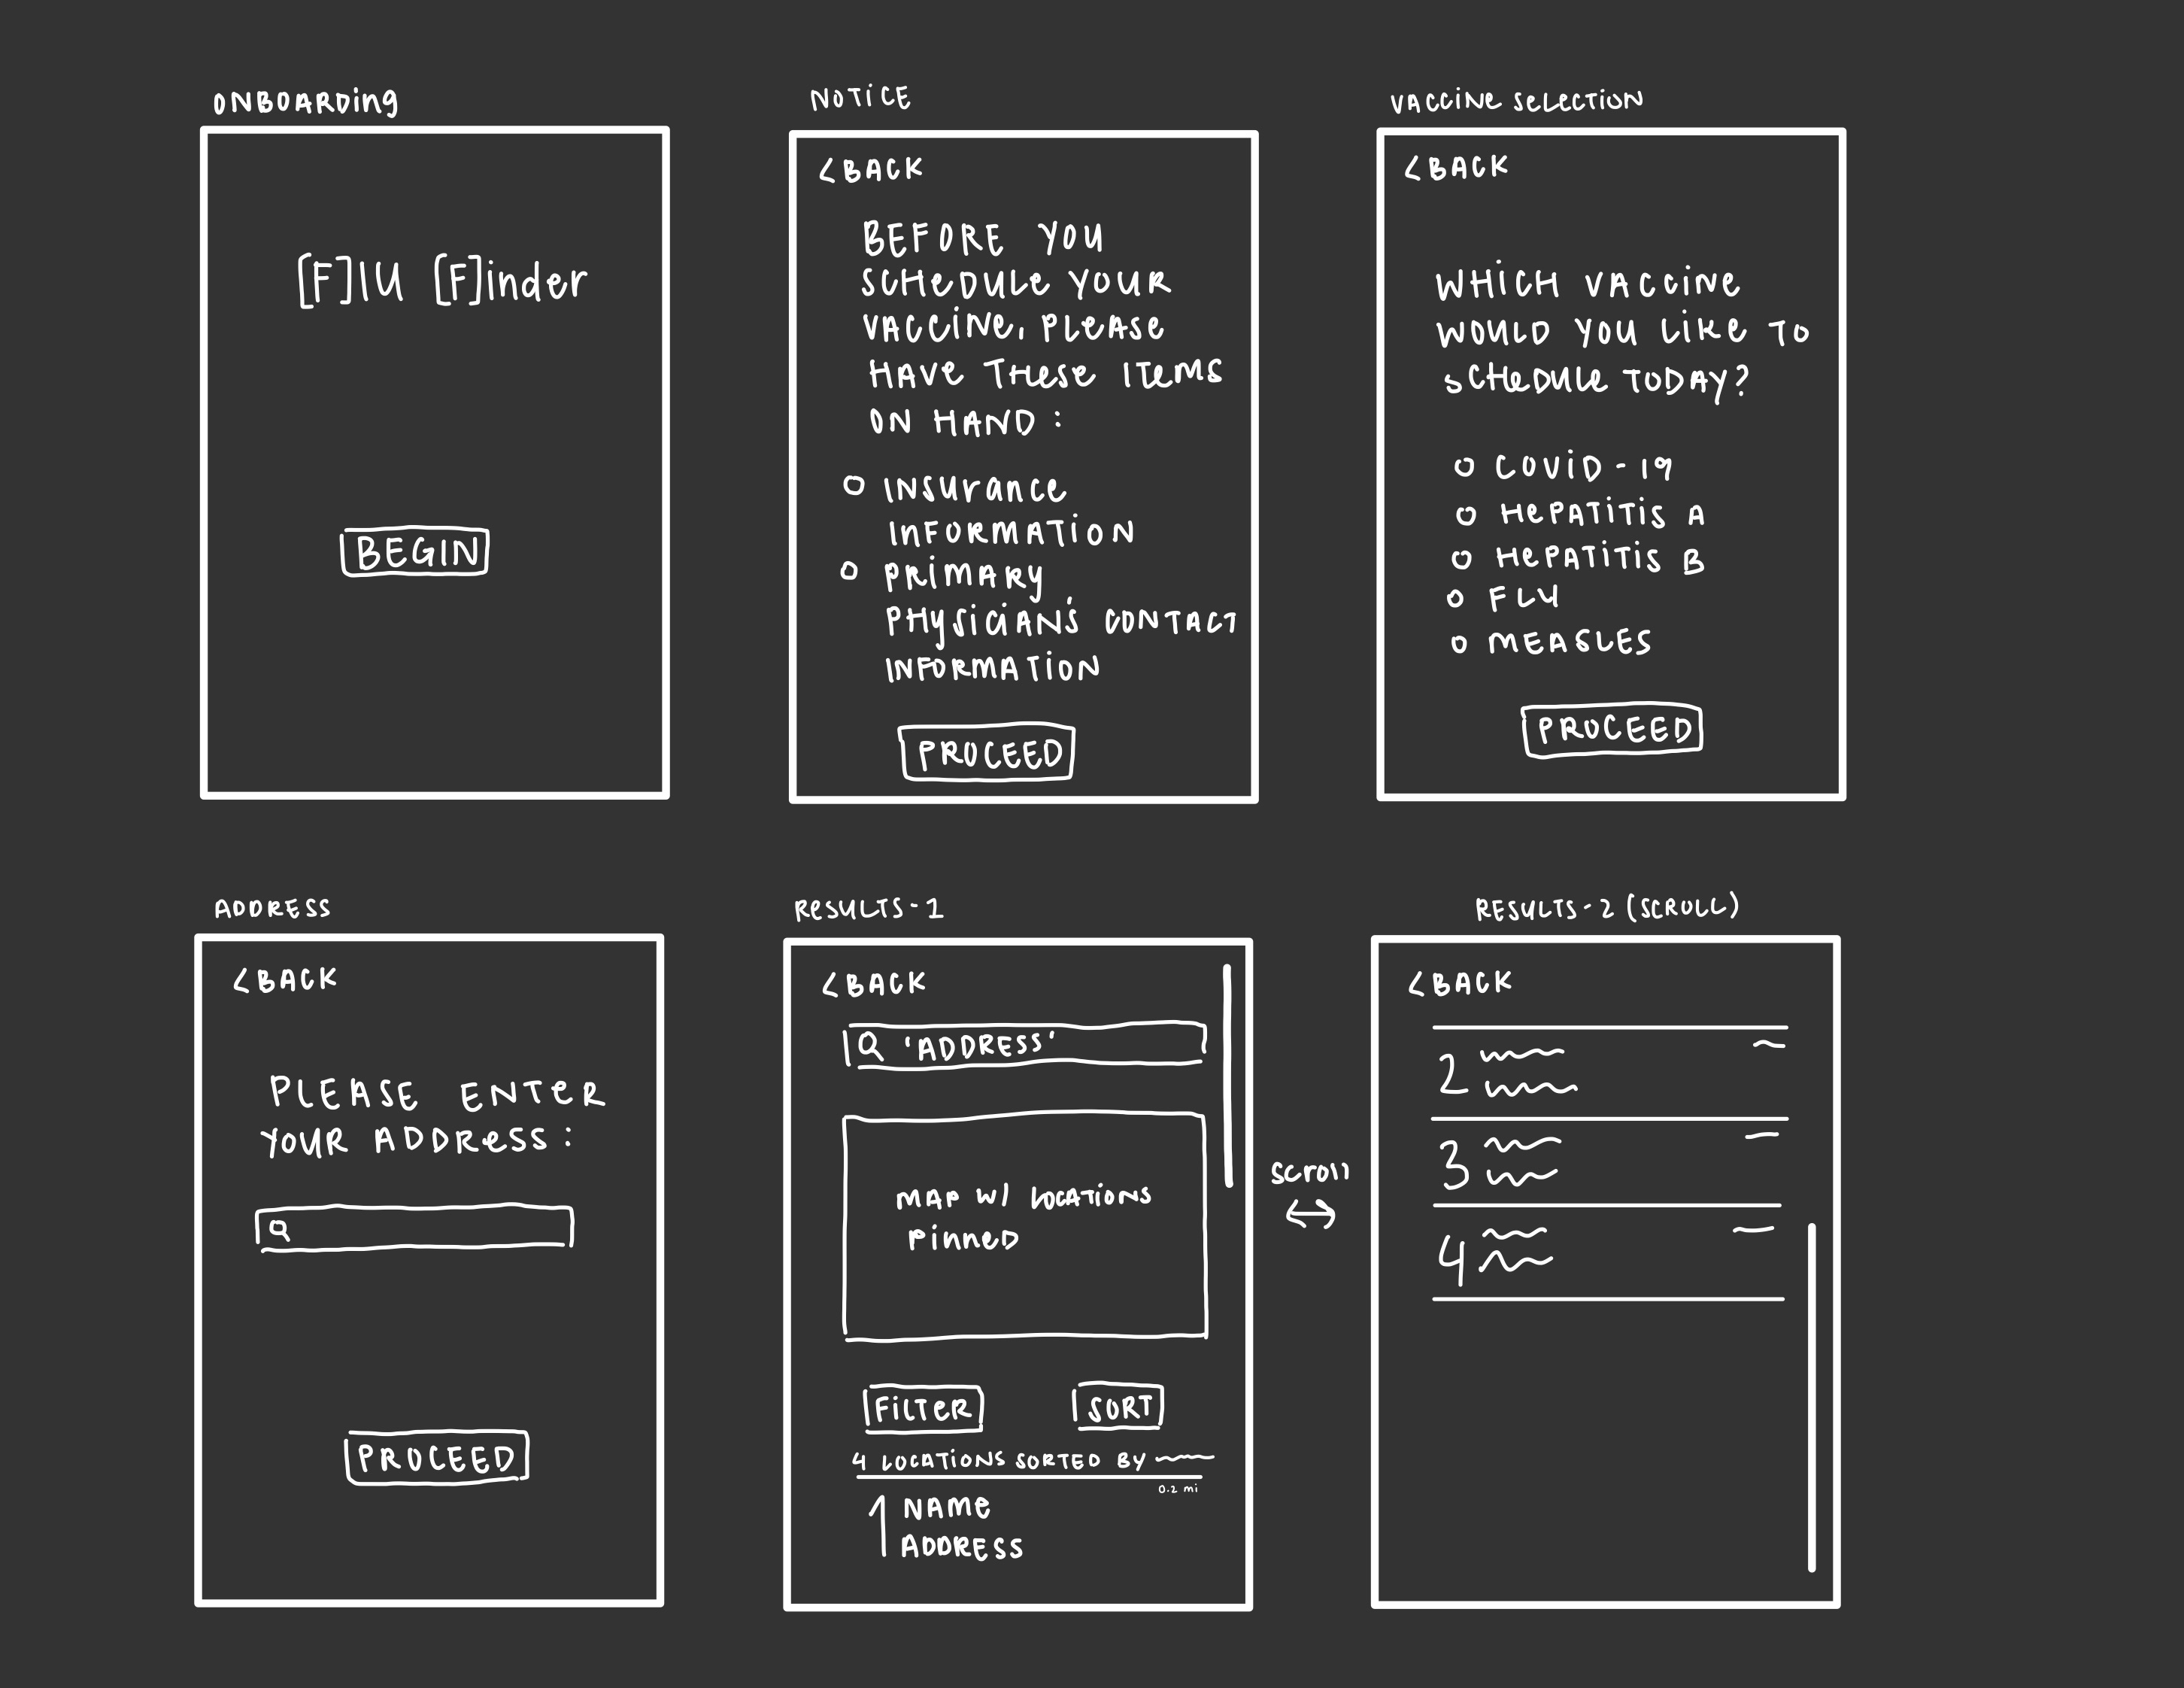 ONBOARding
[F]lu [F]inder
BEGIN
NOTiCE
<BACK
BEFORE YOU
SCHeDULe YOUR
VACCiNe, PLeAse
HAVe THese ITeMS
ON HAND:
INSUrance
InFORMATiON
PRiMARy
PHySiCiAN's CONTACT
INFORMATiON
PROCEED
VACCiNe SeLeCTiON
<BACK
WHiCH VACCiNe
WOULD YOU LiKe TO
SCHeDULe TODAY?
COViD-19
HePATiTiS A
HePATiTiS B
FLU
MEASLES
PROCEED
ADDRESS
<BACK
PLEASE ENTeR
YOUR ADDResS:
PROCEED
ReSULTS-1
<BACK
'ADDRESS'
MAP W/ LOCATiONS
PiNNeD
FiLTeR
SORT
4 LOCATiONS SORTED BY
0.2 mi
1 NAMe
ADDRESS
scroll
RESULTS-2 (SCROLL)
<BACK
2
3
4